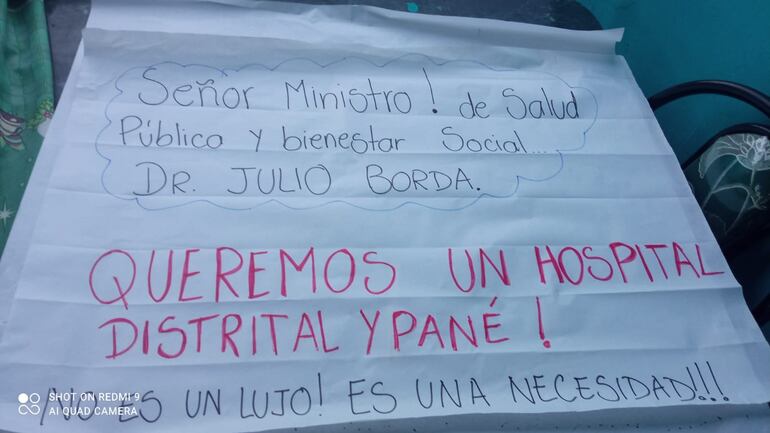 Señor Ministro! de Salud
Pública y bienestar Social...
DR. JULIO BORDA.
QUEREMOS UN HOSPITAL
DISTRITAL YPANÉ!
¡NO ES UN LUJO! ES UNA NECESIDAD!!!
SHOT ON REDMI 9
AI QUAD CAMERA